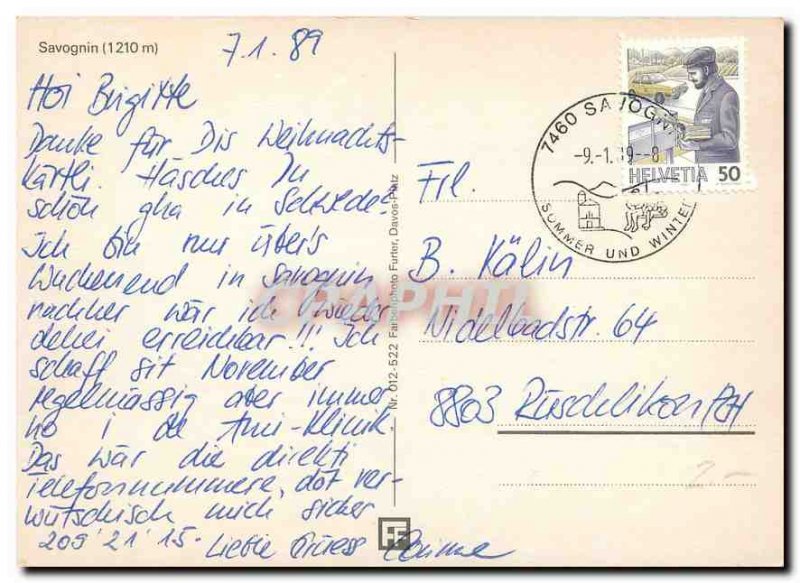 Savognin (1210 m)
7.1.89
Hoi Brigitte
Danke für Dis Weihnachts-
kärtli. Häsches
schön gha in Schwede?
Ich bin nur über's
Wuchenend in Savognin
nachher wär ich wieder
dehei erreichbar!!! Ich
schaff sit November
regelmässig aber immer
no i de Ami-Klinik.
Das wär die direkti
Telefonnummere, döt ver-
wütschisch mich sicher
209'21'15. Liebe Grüess
Nr. 012-522 Farbenphoto Furter, Davos-Platz
7460 SAVOGNIN
-9.-1.89--8
SUMMER UND WINTER
HELVETIA 50
Frl.
B. Kälin
Nidelbadstr. 64
8803 Rüschlikon/ZH
2.-